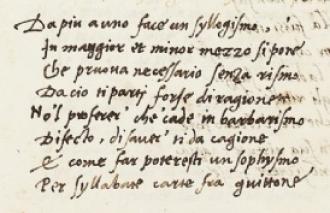 Da piu a uno face un syllogismo,
In maggior et minor mezzo si pone
Che pruova necessario senza rismo
Da cio ti parti forse di ragione
No'l proferer che cade in barbarismo
Difecto, di saver' ti da cagione
E come far poteresti un sophysmo
Per syllabate carte fra guittone